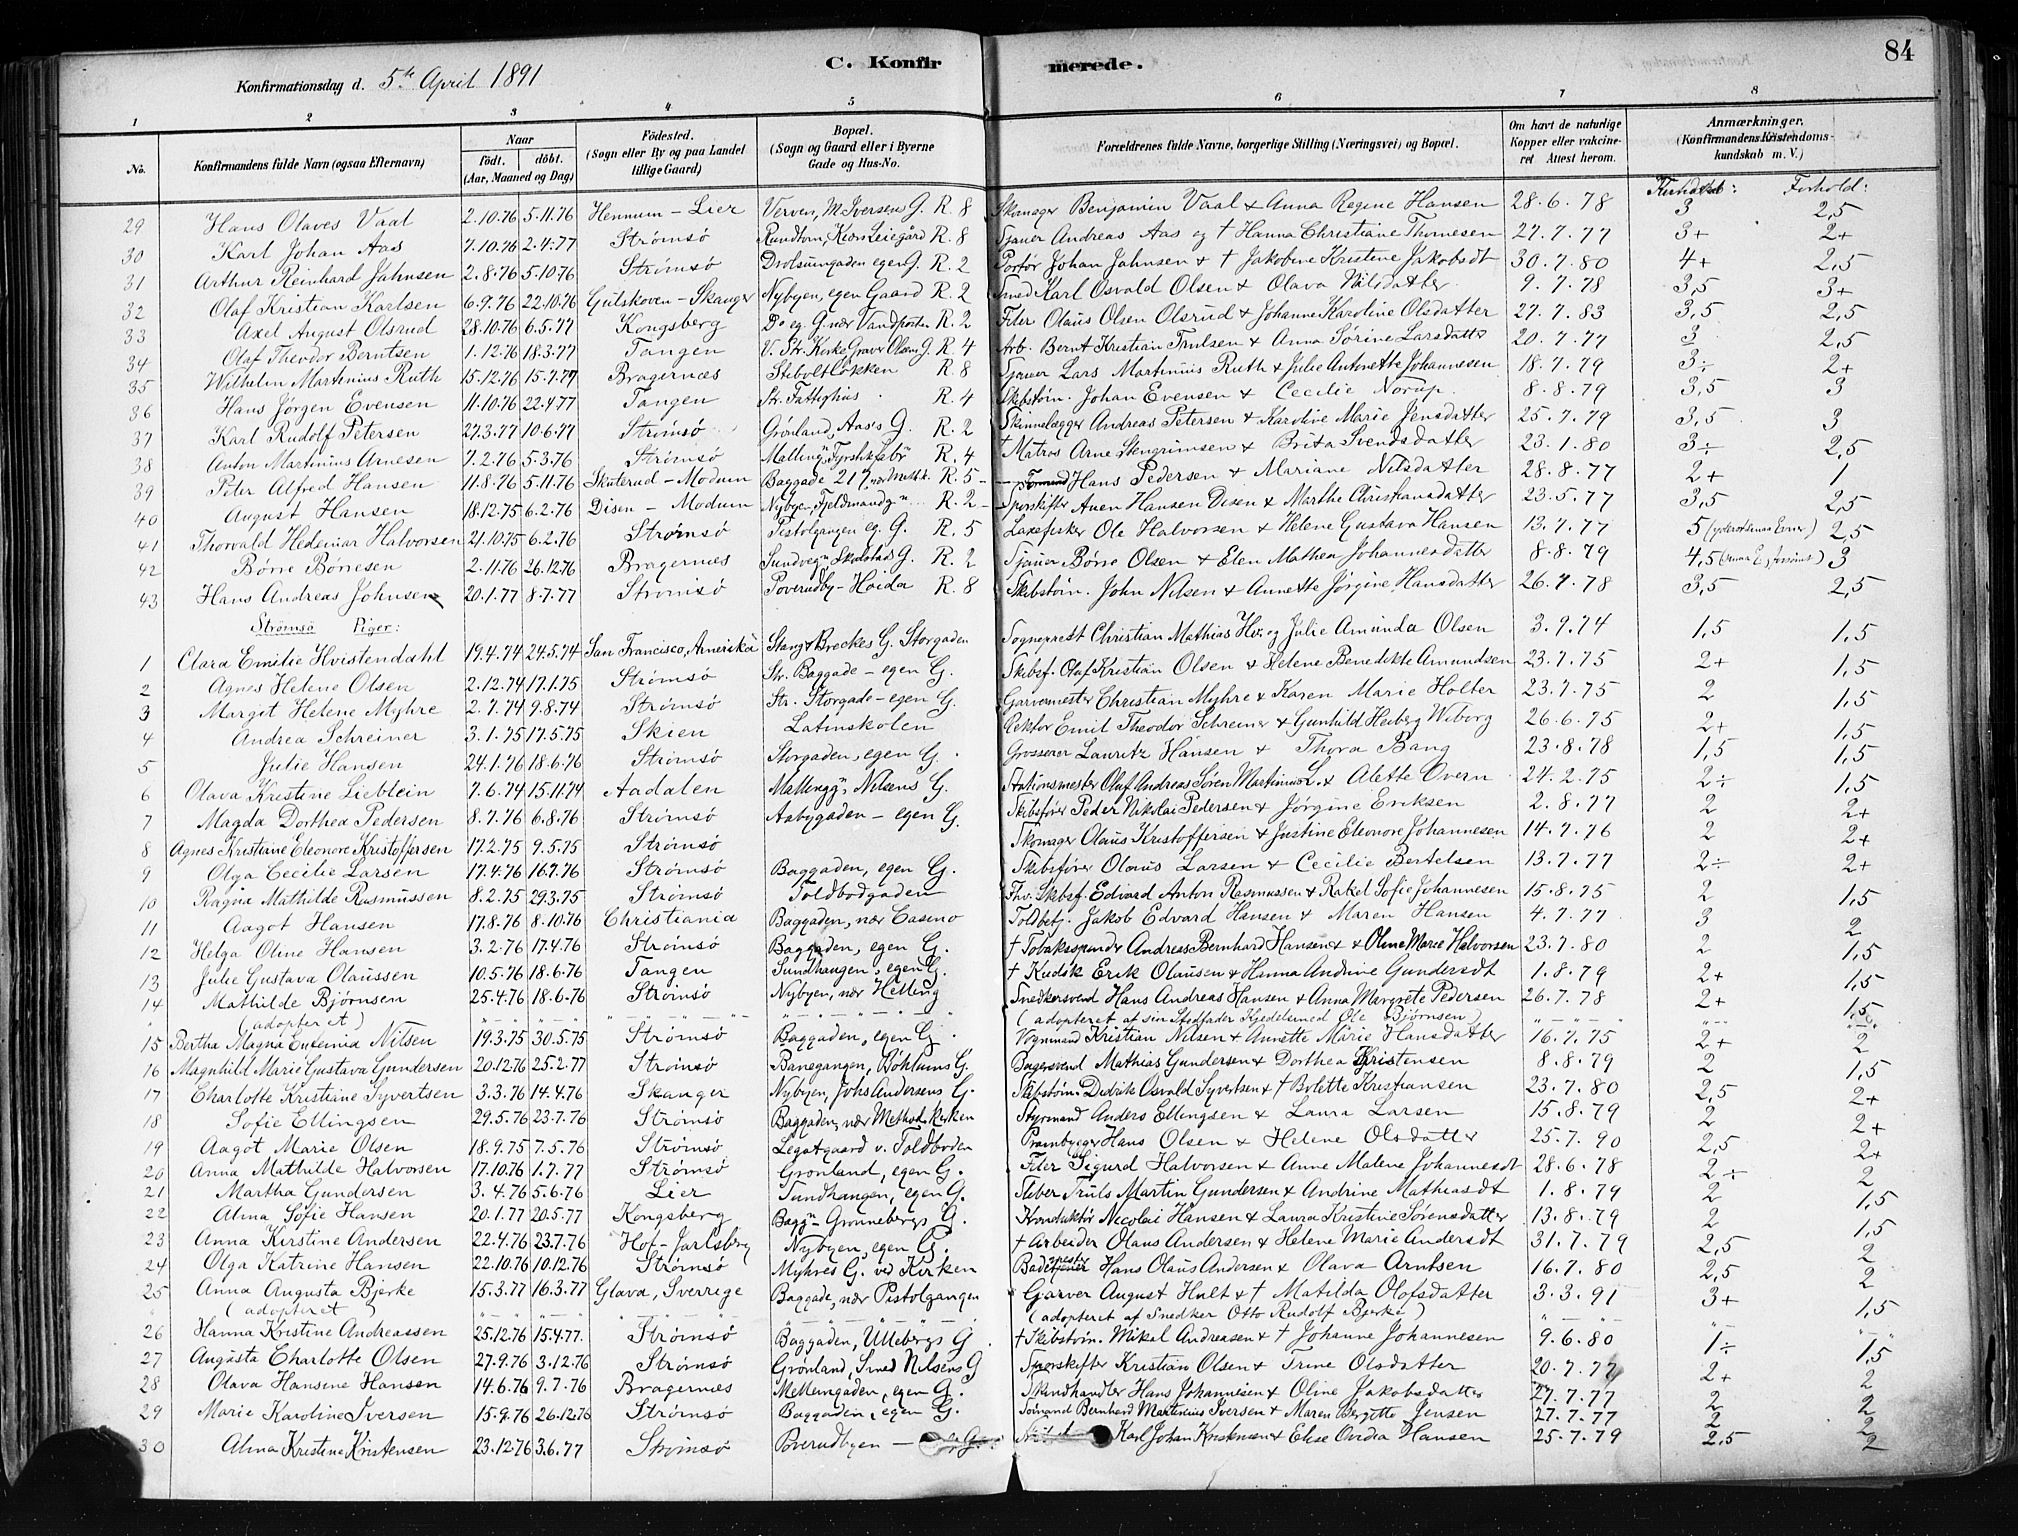 84
C. Konfirmerede.
Konfirmationsdag d. 5te April 1891
1 2 3 4 5 6 7 8
No. | Konfirmandens fulde Navn (ogsaa Efternavn) | Naar født. døbt. (Aar, Maaned og Dag) | Fødested. (Sogn eller By og paa Landet tillige Gaard) | Bopæl. (Sogn og Gaard eller i Byerne Gade og Hus-No. | Forældrenes fulde Navne, borgerlige Stilling (Næringsvei) og Bopæl. | Om havt de naturlige Kopper eller vakcineret Attest herom. | Anmærkninger. (Konfirmandens Kristendomskundskab m. V.)
Kundskab: Forhold:
29 Hans Olaves Vaal 2.10.76 5.11.76 Hennum - Lier Verven, M. Iversens G. R. 8 Skomager Benjamin Vaal & Anna Regine Hansen 28.6.78 3 2,5
30 Karl Johan Aas 7.10.76 2.4.77 Strømsø Rundtom, Leiegård R. 8 Sjauer Andreas Aas og † Hanna Christiane Thomesen 27.7.77 3+ 2+
31 Arthur Reinhard Jahnsen 2.8.76 5.10.76 Strømsø egen G. R. 2 Portør Johan Jahnsen & † Jakobine Kristine Jakobsdt 30.7.80 4+ 2,5
32 Olaf Kristian Karlsen 6.9.76 22.10.76 Gulskoven - Skanger Nybyen, egen Gaard R. 2 Smed Karl Osvald Olsen & Olava Nilsdatter 9.7.78 3,5 3+
33 Axel August Olsrud 28.10.76 6.5.77 Kongsberg Do eg. G. nær Vandposten R. 2 Filer Olaus Olsen Olsrud & Johanne Karoline Olsdatter 27.7.83 3,5 2,5
34 Olaf Theodor Berntsen 1.12.76 18.3.77 Tangen V. Str. Kirke Graver Olsens G. R. 4 Arb. Bernt Kristian Trulsen & Anna Sørine Larsdatter 20.7.77 3 2,5
35 Wilhelm Martinius Ruth 15.12.76 15.7.77 Bragernæs Stiboltløkken R. 8 Sjauer Lars Martinius Ruth & Julie Antonette Johannesen 18.7.79 3÷ 2+
36 Hans Jørgen Evensen 11.10.76 22.4.77 Tangen Str. Fattighus R. 4 Skibstøm. Johan Evensen & Cecilie Norup 8.8.79 3,5 3
37 Karl Rudolf Petersen 27.3.77 10.6.77 Strømsø Grønland, Aas's G. R. 2 Skinnelægger Andreas Petersen & Karoline Marie Jensdatter 25.7.79 3,5 3
38 Anton Martinius Arnesen 7.2.76 5.3.76 Strømsø R. 4 † Matros Arne Stengrimsen & Brita Svendsdatter 23.1.80 3÷ 2,5
39 Peter Alfred Hansen 11.8.76 5.11.76 Skuterud - Modum Baggade 217, R. 5 Hans Pedersen & Mariane Nilsdatter 28.8.77 2+ 1
40 August Hansen 18.12.75 6.2.76 Disen - Modum Nybyen, R. 2 Sporskifter Auen Hansen Disen & Marthe Christiansdatter 23.5.77 3,5 2,5
41 Thorvald Hedemar Halvorsen 21.10.75 6.2.76 Strømsø Pistolgangen eg. G. R. 5 Laxefisker Ole Halvorsen & Helene Gustava Hansen 13.7.77 5 2,5
42 Børre Børresen 2.11.76 26.12.76 Bragernæs Sundvegn Skulstads G. R. 2 Sjauer Børre Olsen & Elen Mathea Johannesdatter 8.8.79 4,5 3
43 Hans Andreas Johnsen 20.1.77 8.7.77 Strømsø Poverudby - Haida R. 8 Skibstøm. John Nilsen & Annette Jørgine Hansdatter 26.7.78 3,5 2,5
Strømsø Piger:
1 Clara Emilie Hvistendahl 19.4.74 24.5.74 San Francisco, Amerika Stang & Breckes G. Storgaden Sogneprest Christian Mathias Hv. og Julie Amunda Olsen 3.9.74 1,5 1,5
2 Agnes Helene Olsen 2.12.74 17.1.75 Strømsø Str. Baggade - egen G. Skibsf. Olaf Kristian Olsen & Helene Benedikte Amundsen 23.7.75 2+ 1,5
3 Margit Helene Myhre 2.7.74 9.8.74 Strømsø Str. Storgade - egen G. Garvermester Christian Myhre & Karen Marie Holter 23.7.75 2 1,5
4 Andrea Schreiner 3.1.75 17.5.75 Skien Latinskolen Rektor Emil Theodor Schreiner & Gunhild Heiberg Wiborg 26.6.75 2+ 1,5
5 Julie Hansen 24.1.76 18.6.76 Strømsø Storgaden, egen G. Grosserer Lauritz Hansen & Thora Bang 23.8.78 1,5 1,5
6 Olava Kristine Lieblein 7.6.74 15.11.74 Aadalen Mellemgn Nilsens G. Stationsmester Olaf Andreas Søren Martinius L. & Alette Overn 24.2.75 2÷ 1,5
7 Magda Dorthea Pedersen 8.7.76 6.8.76 Strømsø Aabygaden - egen G. Skibsfører Peder Nikolai Pedersen & Jørgine Eriksen 2.8.77 2 2+
8 Agnes Kristiane Eleonore Kristoffersen 17.2.75 9.5.75 Strømsø Skomager Olaus Kristoffersen & Justine Eleonore Johannesen 14.7.76 2 2+
9 Olga Cecilie Larsen 17.4.76 16.7.76 Strømsø Baggaden, egen G. Skibsfører Olaus Larsen & Cecilie Bertelsen 13.7.77 2÷ 2+
10 Ragna Mathilde Rasmussen 8.2.75 29.3.75 Strømsø Toldbodgaden Fhv. Skibsf. Edvard Anton Rasmussen & Rakel Sofie Johannesen 15.8.75 2 1,5
11 Aagot Hansen 17.8.76 8.10.76 Christiania Baggaden, nær Casino Toldbetj. Jakob Edvard Hansen & Maren Hansen 4.7.77 3 2
12 Helga Oline Hansen 3.2.76 17.4.76 Strømsø Baggaden, egen G. † Tobaksspinder Andreas Bernhard Hansen & Oline Marie Halvorsen 23.7.80 2 1,5
13 Julie Gustava Olaussen 10.5.76 18.6.76 Tangen Sundhaugen, egen G. † Kudsk Erik Olausen & Hanna Andrine Gundersdt 1.8.79 2+ 1,5
14 Mathilde Bjørnsen 25.4.76 18.6.76 Strømsø Nybyen, nær Helling Snedkersvend Hans Andreas Hansen & Anna Margrete Pedersen 26.7.78 2+ 1,5
" (adopteret) (adopteret af sin Stedfader Kjedelsmed Ole Bjørnsen)
15 Bertha Magna Eufemia Nilsen 19.3.75 30.5.75 Strømsø Baggaden, egen G. Vognmand Kristian Nilsen & Annette Marie Hansdatter 16.7.75 2+ 2
16 Magnhild Marie Gustava Gundersen 20.12.76 25.2.77 Strømsø Banegangen, Bøhlums G. Bagersvend Mathias Gundersen & Dorthea Kristensen 8.8.79 2 1,5
17 Charlotte Kristine Syvertsen 3.3.76 14.4.76 Skanger Nybyen, Johs Andersens G. Skibstøm. Didrik Osvald Syvertsen & † Bolette Kristiansen 23.7.80 2,5 2+
18 Sofie Ellingsen 29.5.76 23.7.76 Strømsø Baggaden, nær Methodk. Kirken Styrmand Anders Ellingsen & Laura Larsen 15.8.79 2 2+
19 Aagot Marie Olsen 18.9.75 7.5.76 Strømsø Legatgaard v. Toldboden Prambygger Hans Olsen & Helene Olsdatter 25.7.90 2,5 2+
20 Anna Mathilde Halvorsen 17.10.76 1.7.77 Strømsø Grønland, egen G. Filer Sigurd Halvorsen & Anne Malene Johannesdt 28.6.78 2÷ 2
21 Martha Gundersen 3.4.76 5.6.76 Lier Tundhaugen, egen G. Støber Truls Martin Gundersen & Andrine Mathiasdt 1.8.79 2 1,5
22 Alma Sofie Hansen 20.1.77 20.5.77 Kongsberg Baggn Grønnebergs G. Konduktør Nicolai Hansen & Laura Kristine Sørensdatter 13.8.79 2 1,5
23 Anna Kirstine Andersen 22.4.76 23.7.76 Hof - Jarlsberg Nybyen, egen G. † Arbeider Olaus Andersen & Helene Marie Andersdt 31.7.79 2,5 2
24 Olga Katrine Hansen 22.10.76 10.12.76 Strømsø Myhres G. ved Kirken Hans Olaus Andersen & Olava Arntsen 16.7.80 2,5 2
25 Anna Augusta Bjerke 15.3.77 16.3.77 Glava, Sverrige Baggade, nær Pistolgangen Garver August Hult & † Matilda Olofsdatter 3.3.91 3+ 1,5
" (adopteret) (adopteret af Snedker Otto Rudolf Bjerke)
26 Hanna Kristine Andreassen 25.12.76 15.4.77 Strømsø Baggaden, Ullebergs G. † Skibstøm. Mikal Andreasen & † Johanne Johannesen 9.6.80 1÷ 1,5
27 Augusta Charlotte Olsen 27.9.76 3.12.76 Strømsø Grønland, Smed Nilsens G Sporskifter Kristian Olsen & Trine Olsdatter 20.7.77 2+ 2
28 Olava Hansine Hansen 14.6.76 9.7.76 Bragernæs Mellemgaden, egen G. Skindhandler Hans Johannesen & Oline Jakobsdatter 27.7.77 2 2
29 Marie Karoline Iversen 15.9.76 26.12.76 Strømsø Baggaden, egen G. Sømand Bernhard Martinius Iversen & Maren Bergitte Jensen 27.7.77 2 2
30 Alma Kristine Kristensen 23.12.76 3.6.77 Strømsø Poverudbyen - Karl Johan Kristensen & Elise Ovidia Hansen 25.7.79 2,5 2